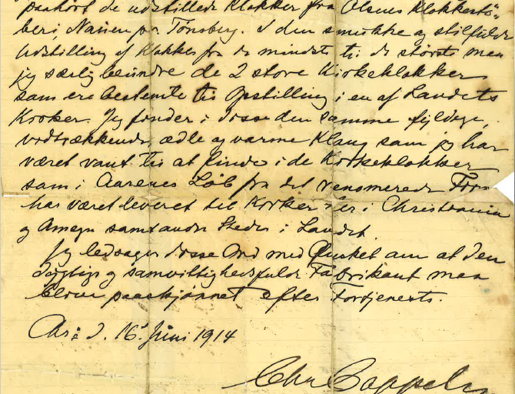 paahørt de udstillede Klokker fra Olsens Klokkestø-
beri, Nauen pr Tønsberg. I den smukke og stilfulde
Udstilling af Klokker fra de mindste til de største maa
jeg særlig beundre de 2 store Kirkeklokker
som ere bestemte til Opstilling i en af Landets
Kirker. Jeg finder i disse den samme fyldige,
vidtrækkende, ædle og varme Klang som jeg har
været vant til at finde i de Kirkeklokker
som i Aarenes Løb fra det renomerede Firma
har været leveret til Kirker her i Christiania
og Omegn samt andre Steder i Landet.
Jeg ledsager disse Ord med Ønsket om at den
dygtige og samvittighedsfulde Fabrikant maa
blive paaskjønnet efter Fortjeneste.
d. 16 Juni 1914
Chr. Cappelen